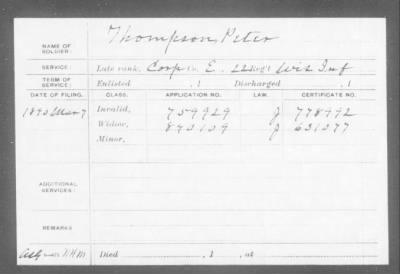 Thompson, Peter
NAME OF SOLDIER:
SERVICE: Late rank, Corp Co. E, 22 Reg't Wis Inf
TERM OF SERVICE: Enlisted , 1 Discharged , 1
DATE OF FILING. CLASS. APPLICATION NO. LAW. CERTIFICATE NO.
1890 Mar 7 Invalid, 759929 J 778992
Widow, J 631077
Minor,
ADDITIONAL SERVICES:
REMARKS
Died , 1 , at